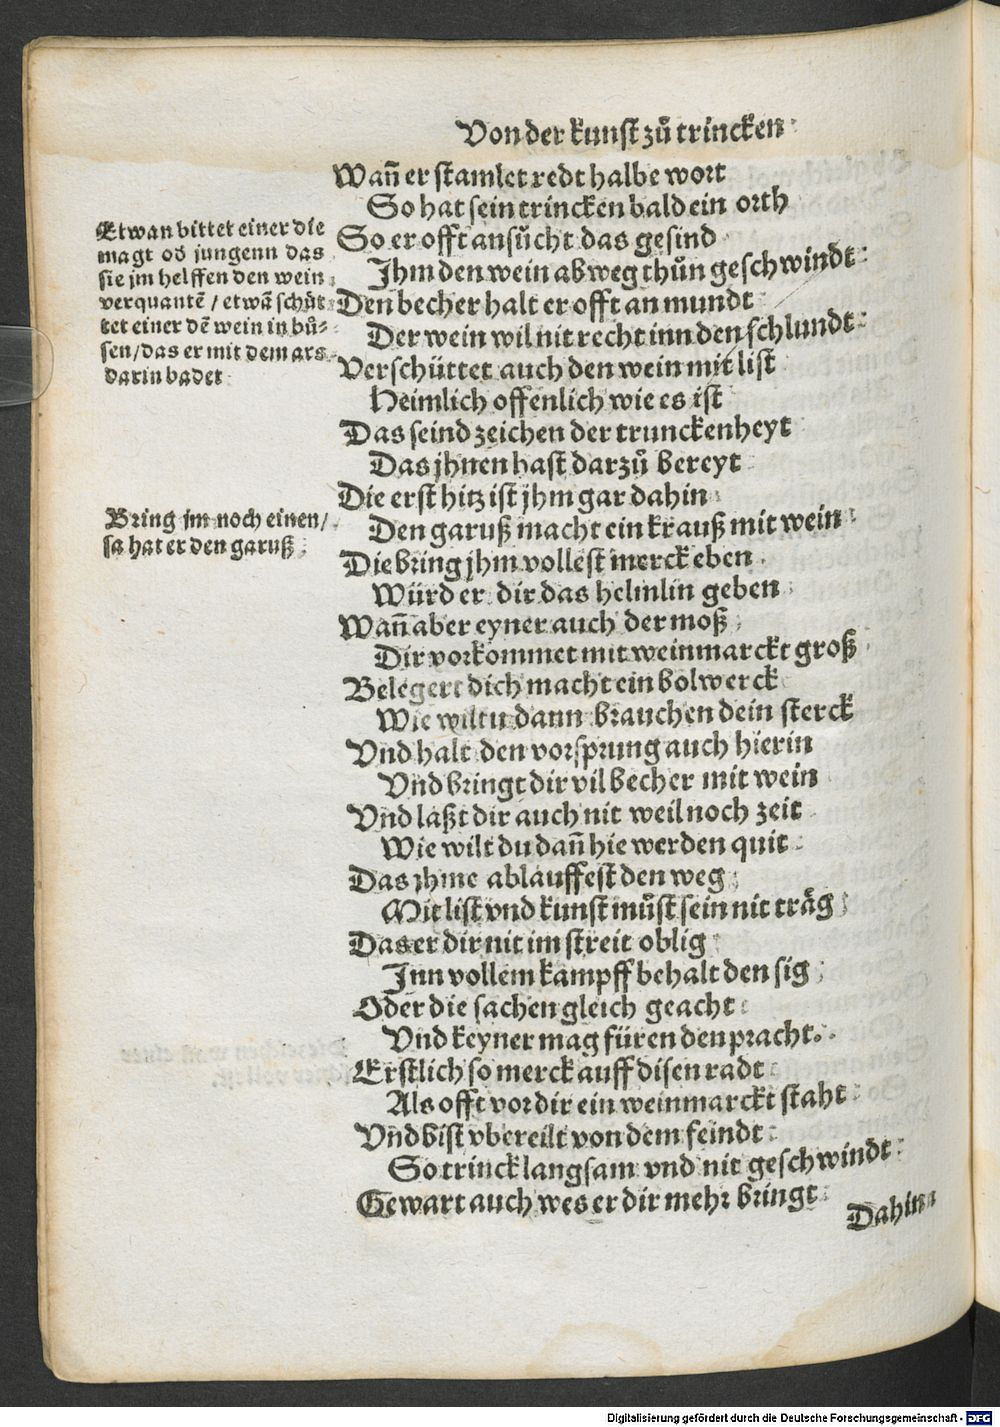 Von der kunst zů trincken
Wañ er stamlet redt halbe wort
So hat sein trincken bald ein orth
So er offt ansůcht das gesind
Jhm den wein abweg thůn geschwindt:
Den becher halt er offt an mundt
Der wein wil nit recht inn den schlundt:
Verschüttet auch den wein mit list
Heimlich offenlich wie es ist
Das seind zeichen der trunckenheyt
Das jhnen hast darzů bereyt
Die erst hitz ist jhm gar dahin
Den garuß macht ein krauß mit wein
Die bring jhm vollest merck eben
Würd er dir das helmlin geben
Wañ aber eyner auch der moß
Dir vorkommet mit weinmarckt groß
Belegert dich macht ein bolwerck
Wie wiltu dann brauchen dein sterck
Vnd halt den vorsprung auch hierin
Vnd bringt dir vil becher mit wein
Vnd laßt dir auch nit weil noch zeit
Wie wilt du dañ hie werden quit
Das jhme ablauffest den weg
Mit list vnd kunst můst sein nit träg
Das er dir nit im streit oblig
Inn vollem kampff behalt den sig
Oder die sachen gleich geacht
Vnd keyner mag füren den pracht.
Erstlich so merck auff disen radt
Als offt vor dir ein weinmarckt staht
Vnd bist vbereilt von dem feindt
So trinck langsam vnd nit geschwindt
Gewart auch wes er dir mehr bringt
Dahin
Etwan bittet einer die
magt od jungenn das
sie jm helffen den wein
verquantē / etwā schüt
tet einer dē wein in bů-
sen / das er mit dem ars
darin badet
Bring jm noch einen /
sa hat er den garuß
Digitalisierung gefördert durch die Deutsche Forschungsgemeinschaft - DFG